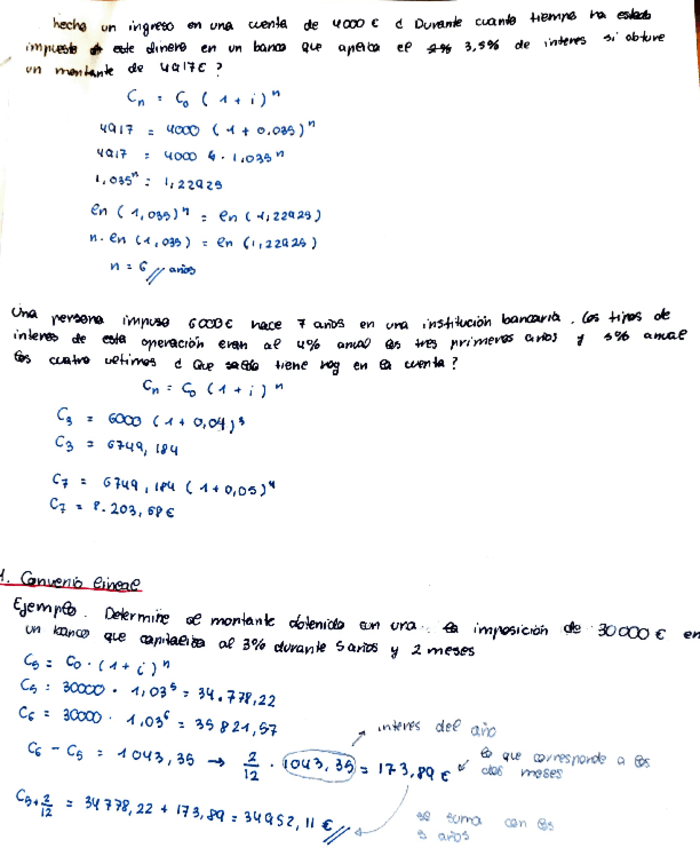 hecho un ingreso en una cuenta de 4000 € ¿ Durante cuanto tiempo ha estado
impuesto este dinero en un banco que aplica el 3,5% de interes si obtuve
un montante de 4917€ ?
Cn = C0 ( 1 + i )^n
4917 = 4000 ( 1 + 0.035 )^n
4917 = 4000 · 1,035^n
1,035^n = 1,22925
ln ( 1,035 )^n = ln ( 1,22925 )
n. ln ( 1,035 ) = ln ( 1,22925 )
n = 6 // años
Una persona impuso 6000€ hace 7 años en una institución bancaria. Los tipos de
interes de esta operación eran al 4% anual los tres primeros años y 5% anual
los cuatro ultimos ¿ Que saldo tiene hoy en la cuenta ?
Cn = C0 ( 1 + i )^n
C3 = 6000 ( 1 + 0,04 )^3
C3 = 6749,184
C7 = 6749,184 ( 1 + 0,05 )^4
C7 = 8.203,68€
1. Convenio lineal
Ejemplo. Determine el montante obtenido con una la imposición de 30000 € en
un banco que capitaliza al 3% durante 5 años y 2 meses
C5 = C0 · ( 1 + i )^n
C5 = 30000 · 1,03^5 = 34.778,22
C6 = 30000 · 1,03^6 = 35821,57
interes del año
C6 - C5 = 1043,35 → 2/12 · 1043,35 = 173,89 €
lo que corresponde a los
dos meses
C5+2/12 = 34778,22 + 173,89 = 34952,11 € //
se suma con los
5 años